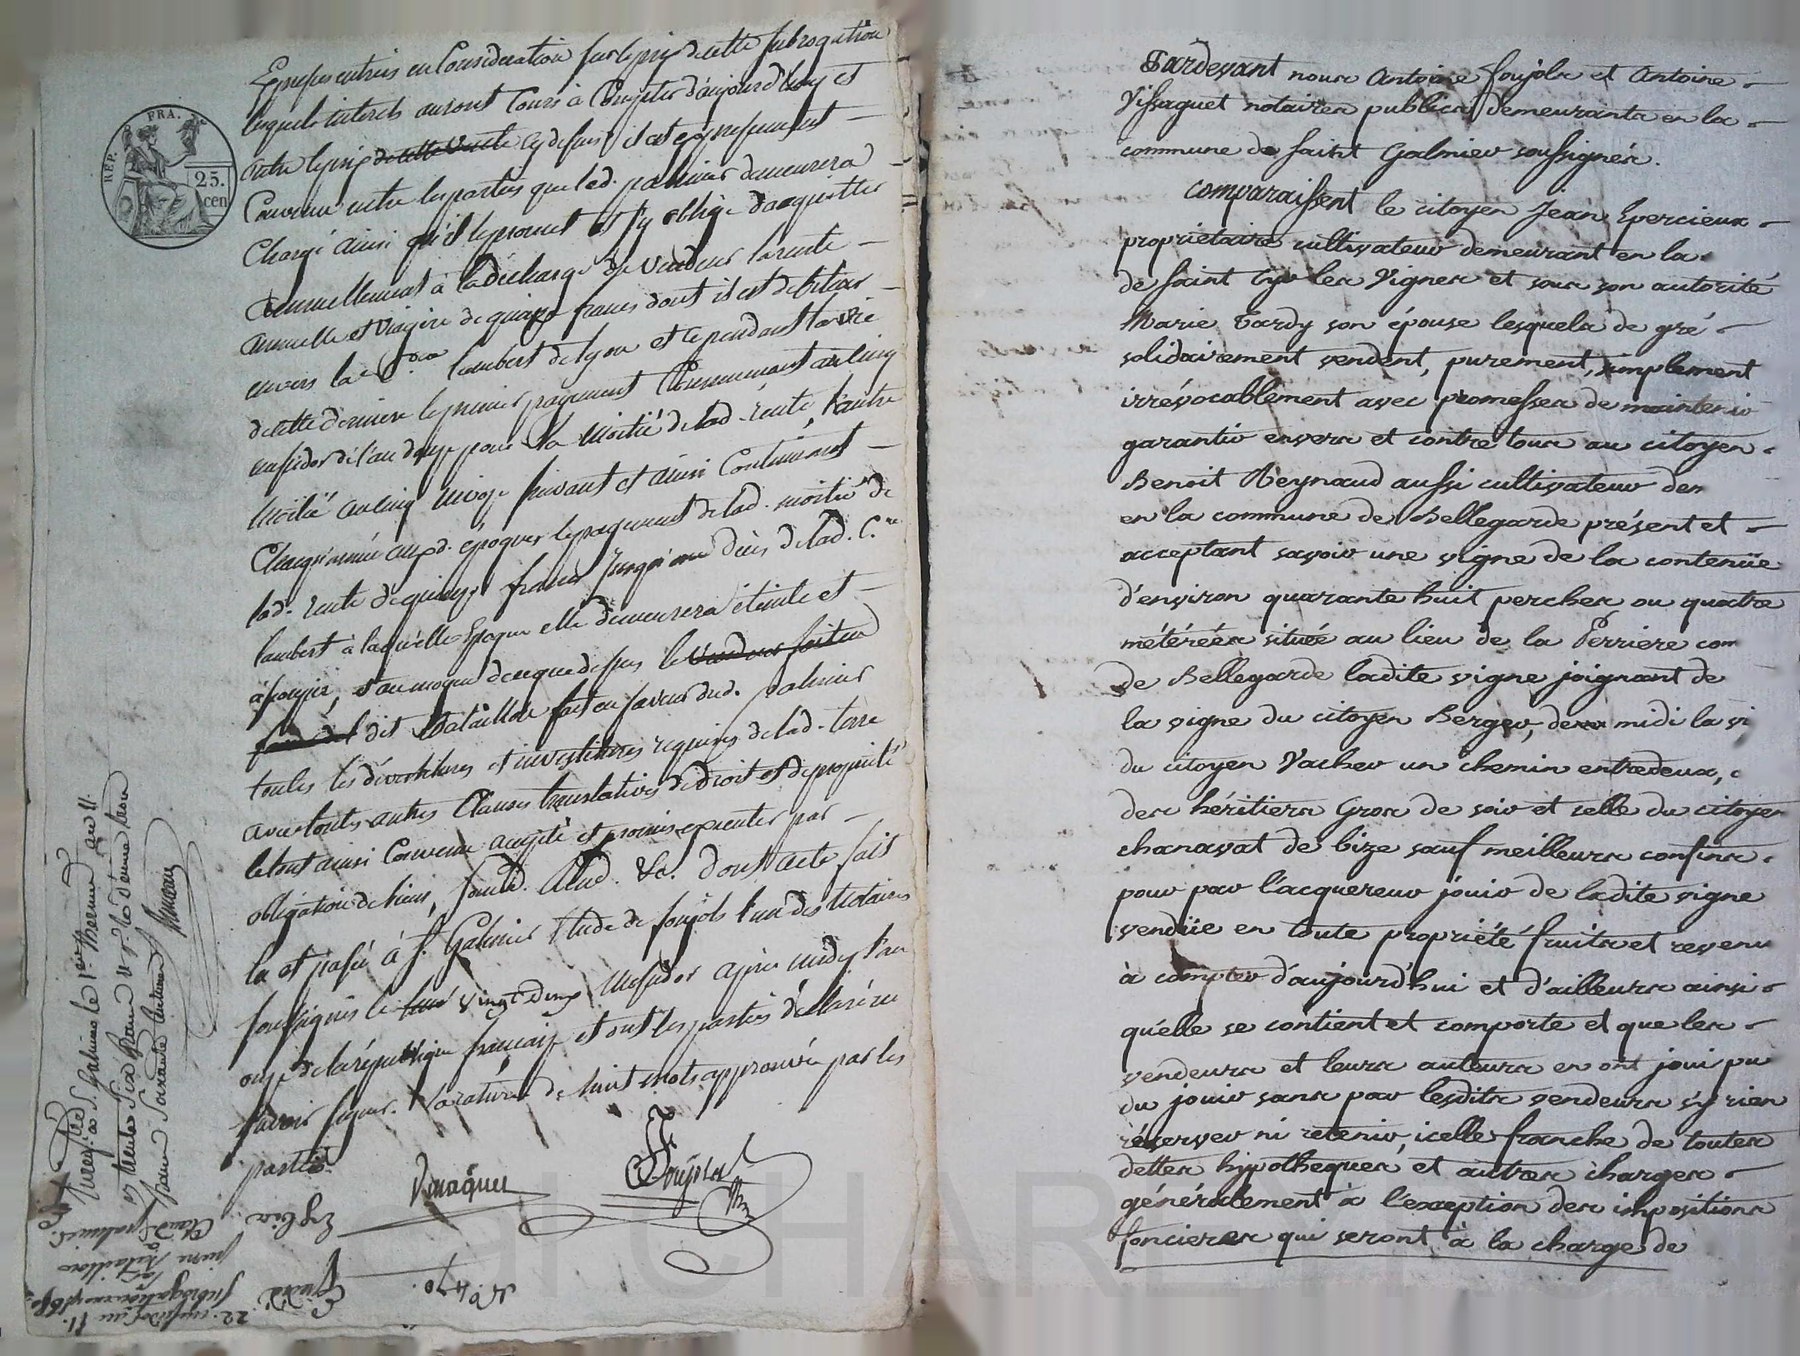 REP. FRA.
25.
cen
Expresse entrées en Considération sur le prix de cette subrogation
lesquels interets auront Cours à Compter d'aujourd'huy et
outre le prix de cette vente cy dessus il est expressement
Convenu entre les parties que led. palmier demeurera
Chargé ainsi qu'il le promet et s'y oblige d'acquitter
annuellement à la décharge du vendeur la rente
annuelle et viagère de quinze francs dont il est debiteur
envers la C.ne Lambert de Lyon et ce pendant la vie
de cette dernière le premier payement Commencant au cinq
messidor de l'an douze pour la moitié de lad. rente, l'autre
moitié au cinq nivose suivant et ainsi Continuant
Chaque année auxd. époques le payement de lad. moitié de
lad. rente de quinze francs jusqu'au décès de lad. C.ne
lambert à laquelle Epoque elle demeurera éteinte et
, et au moyen de ce que dessus le vendeur
dit Bataillon fait en faveur dud. palmier
toutes les dévestitures et investitures requises de lad. terre
avec toutes autres Clauses translatives de droit et de propriété
le tout ainsi Convenu accepté et promis executer par
obligation de biens, soum. Rend. &c. Dont acte fait
lu et passé à S. Galmier Etude de foujols l'un des Notaires
soussignés le vingt deux Messidor après midy l'an
onze de la république française et ont les parties déclaré ne
savoir signer. La rature de huit mots approuvée par les
parties.
Vissaguet Foujols
N.o 470.
Enreg.é à S. Galmier le 1er Thermid.or an 11.
22 messidor an 11.
Subrogation
par
pierre Bataillon
à
Claude palmier
Pardevant nous Antoine foujols et Antoine
Vissaguet notaires publics demeurants en la
commune de Saint Galmier soussignés.
comparaissent le citoyen Jean Epercieux
propriétaire cultivateur demeurant en la
de Saint Cyr les Vignes et sous son autorité
Marie Tardy son épouse lesquels de gré
solidairement vendent, purement, simplement
irrévocablement avec promesses de maintenir
garantir envers et contre tous au citoyen
Benoit Reynaud aussi cultivateur dem
en la commune de Bellegarde présent et
acceptant savoir une vigne de la contenüe
d'environ quarante huit perches ou quatre
métérées située au lieu de la Perriere com
de Bellegarde ladite vigne joignant de
la vigne du citoyen Berger, de midi la vi
du citoyen Vacher un chemin entredeux,
des héritiers Gros de soir et celle du citoyen
chanavat de bize sauf meilleurs confins.
pour par l'acquereur jouir de ladite vigne
vendüe en toute propriété fruits et revenu
à compter d'aujourd'hui et d'ailleurs ainsi
qu'elle se contient et comporte et que les
vendeurs et leurs auteurs en ont joui pu
du jouir sans par lesdits vendeurs s'y rien
réserver ni retenir, icelle franche de toutes
dettes hypotheques, et autres charges
généralement à l'exception des impositions
foncieres qui seront à la charge de